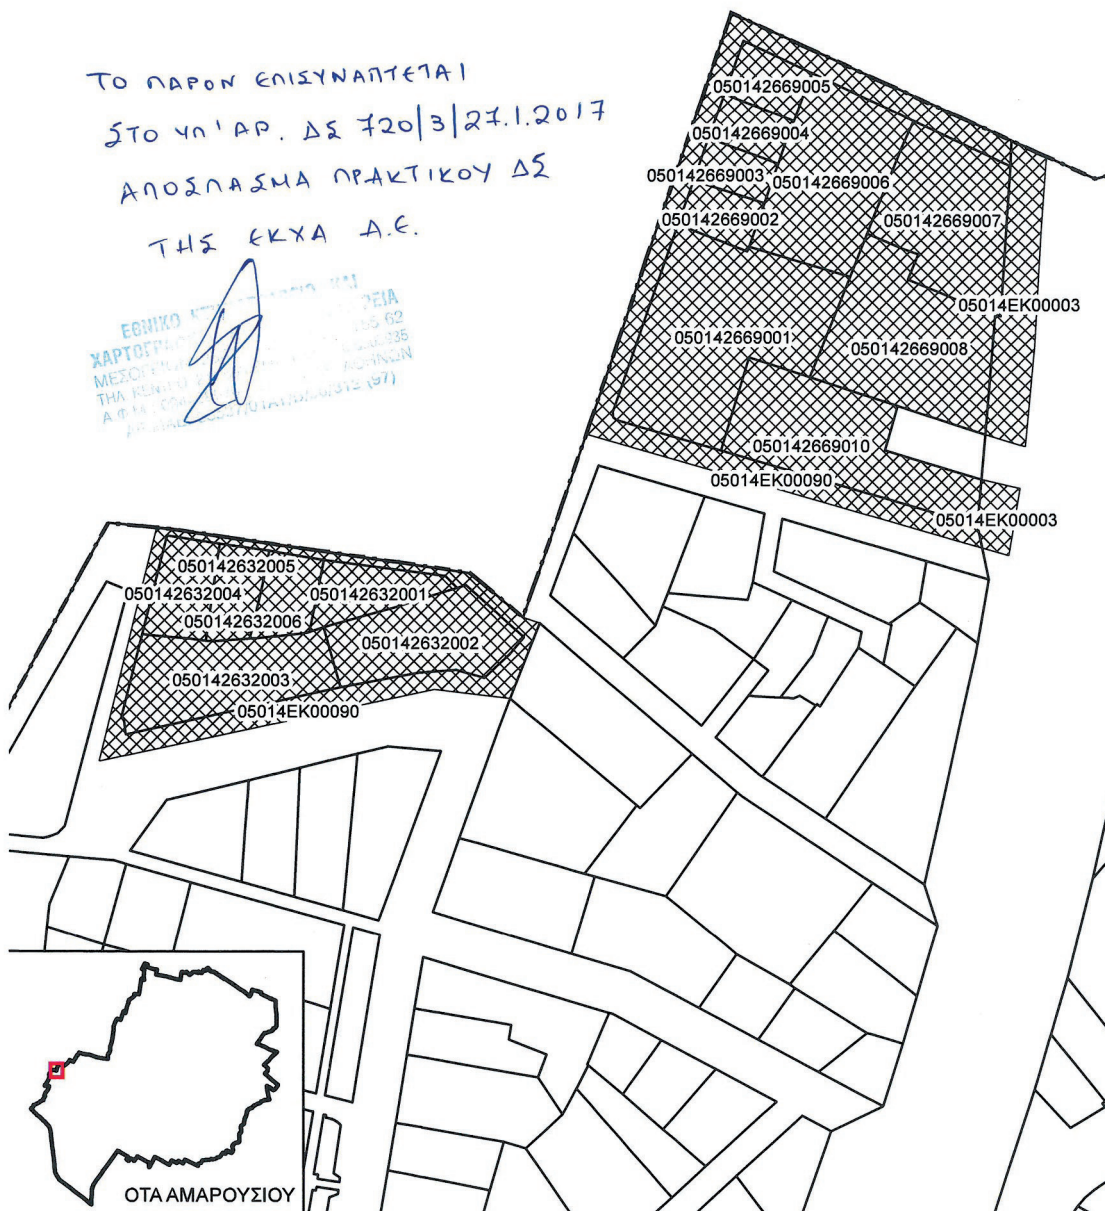 ΤΟ ΠΑΡΟΝ ΕΠΙΣΥΝΑΠΤΕΤΑΙ
ΣΤΟ ΥΠ' ΑΡ. ΔΣ 720/3/27.1.2017
ΑΠΟΣΠΑΣΜΑ ΠΡΑΚΤΙΚΟΥ ΔΣ
ΤΗΣ ΕΚΧΑ Α.Ε.
ΕΘΝΙΚΟ ΚΑΙ
62
(97)
050142669005
050142669004
050142669003
050142669006
050142669002
050142669007
05014ΕΚ00003
050142669001
050142669008
050142669010
05014ΕΚ00090
05014ΕΚ00003
050142632005
050142632004
050142632001
050142632006
050142632002
050142632003
05014ΕΚ00090
ΟΤΑ ΑΜΑΡΟΥΣΙΟΥ